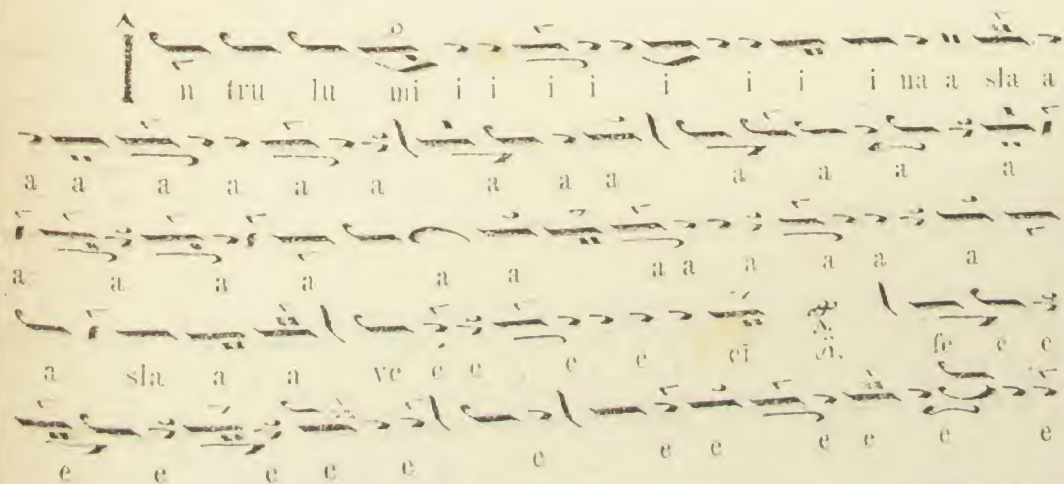 În tru lu mi i i i i i i i i na a sla a
a a a a a a a a a a a a a
a a a a a a a a a a a a
a sla a a ve e e e e eĭ fe e e
e e e e e e e e e e e e